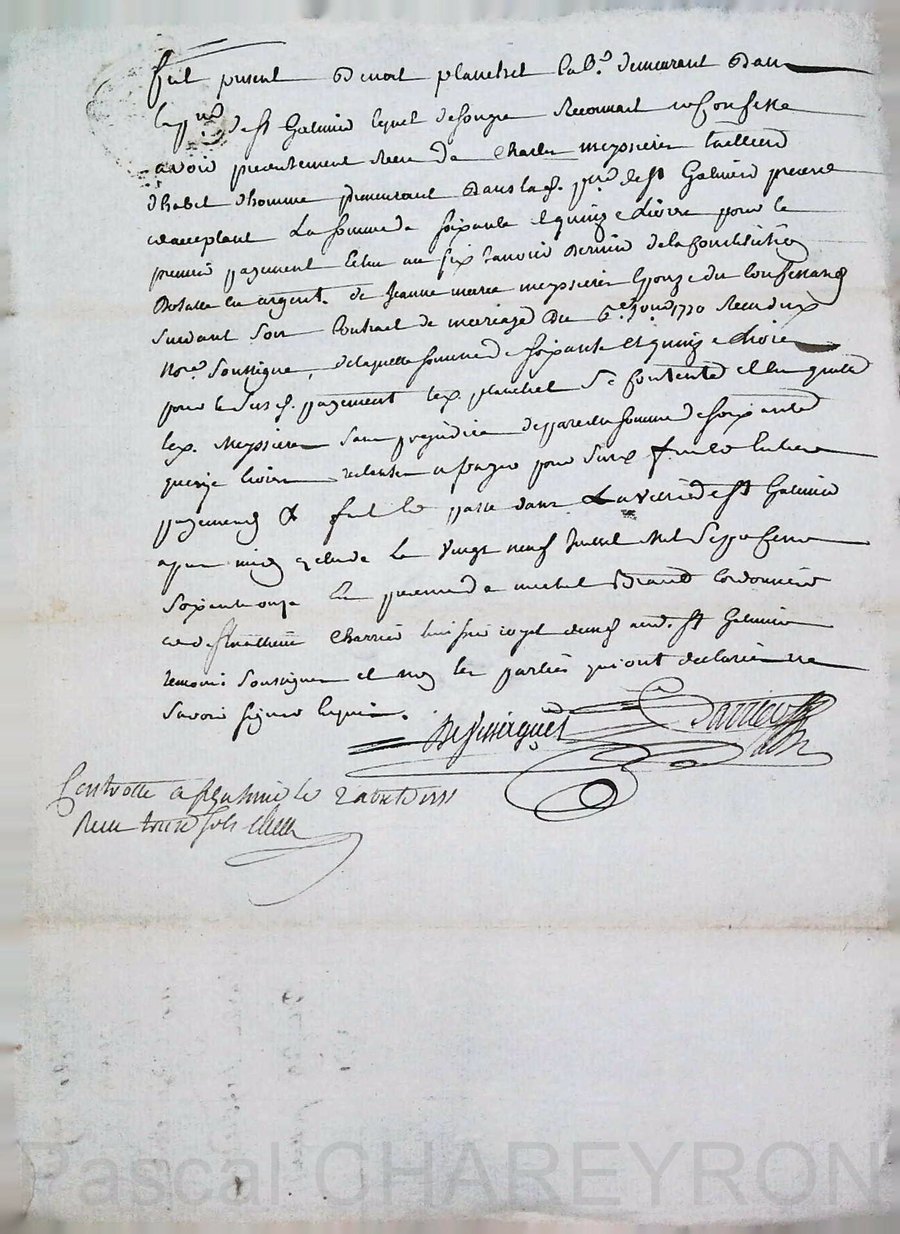 fut present Benoit planchet lab.r demeurant dans
la pr.sse de st Galmier lequel de son gré Reconnait et confesse
avoir presentement Receu de Charles meyssonier tailleur
d'habit d'homme demeurant dans lad. pr.sse de st Galmier present
et acceptant La somme de soixante et quinze livres pour le
premier payement echu au six Janvier dernier de la constitution
Dotalle en argent de Jeanne marie meyssonier epouze du confessant
suivant son Contract de mariage du 6.e 1770 Receu du
No.re soussigné, de laquelle somme de soixante et quinze livres
pour le susd. payement led. planchet se contente et en quitte
led. Meyssonier sans prejudice de pareille somme de soixante
quinze livres restante a payer pour
payement fait et passé dans La ville de st Galmier
apres midy Le vingt neuf Juillet Mil Sept Cent
soixante onze En presence de michel Cordonnier
et de Charrier huissier royal aud. st Galmier
temoins soussignes et non les parties qui ont declaré ne
savoir signer
Charrier
Controllé a st Galmier le 2 aout 1771
Receu treize sols
Pascal CHAREYRON